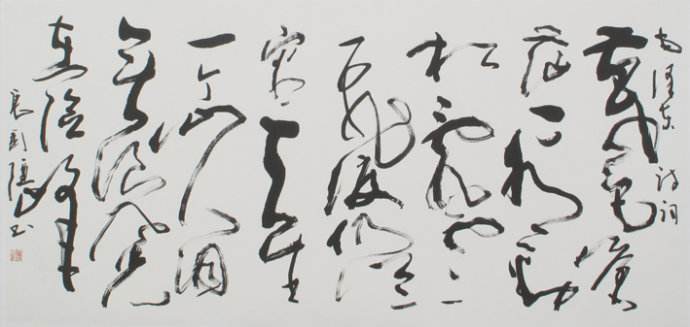 毛泽东诗词
暮色苍
茫看劲
松乱云
飞渡仍从
容天生
一个仙人洞
无限风光
在险峰
书